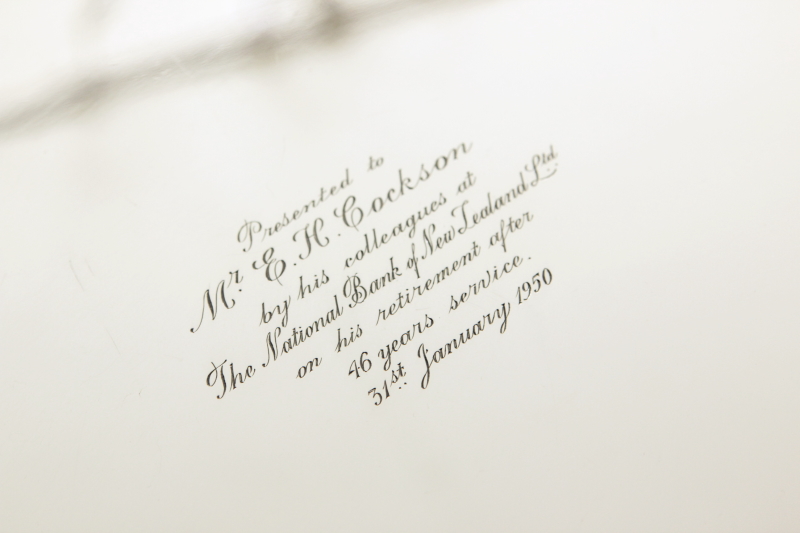 Presented to
Mr. E. H. Cockson
by his colleagues at
The National Bank of New Zealand Ltd.
on his retirement after
46 years service.
31st January 1950